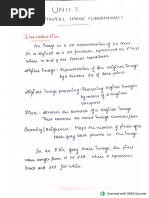 UNIT I
DIGITAL IMAGE FUNDAMENTALS
Introduction
An Image is a 2D representation of 3D scene
It is defined as a 2D function, represented as f(x,y)
where x and y are spatial coordinates
Digital Image - Representation of the original image
by a discrete set of data points
Digital image processing - Processing digital image
by means of a digital
computer
Pixel - denotes the elements of a digital image
These elements are called as image elements
Intensity/Brightness - Maps the number of pixels for
each gray level value
In an 8 bit gray scale image, the pixel
value ranges from 0 to 255 where 0 represents
black and 255 for white.
Scanned with OKEN Scanner